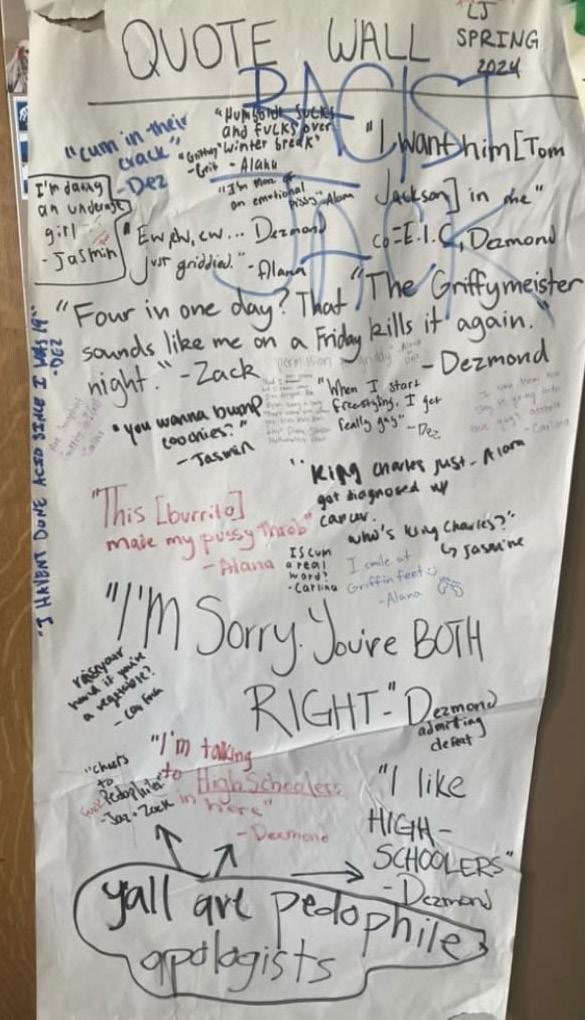 QUOTE WALL
LJ
SPRING
2024
RACIST
JACK
"cum in their
crack"
-Dez
"Humboldt sucks
and fucks over
winter break"
- Alana
"I want him [Tom
Jackson] in me"
co-E.I.C, Dezmond
I'm dating
an underage
girl
- Jasmin
"I'm more of
an emotional
pissy" - Alana
"Ew, ew, ew... Dezmond
just griddied." - Alana
"Four in one day? That
sounds like me on a Friday
night." - Zack
"The Griffymeister
kills it again."
- Dezmond
"I HAVENT DONE ACID SINCE I WAS 19"
-DEZ
"you wanna bump
coochies?"
- Jasmin
"When I start
freestyling, I get
really gay" - Dez
"King Charles just - Alana
got diagnosed w/
cancer.
who's King Charles?"
↳ Jasmine
"This [burrito]
made my pussy throb"
- Alana
Is cum
a real
word?
- Carlina
I smile at
Griffin feet
- Alana
"I'M Sorry. You're BOTH
RIGHT-" Dezmond
admitting
defeat
raise your
hand if you're
a vegetable?
"cheers
to
Pedophilia"
- Jaz + Zack
"I'm talking
to High Schoolers
in here"
- Dezmond
"I like
HIGH-
SCHOOLERS"
- Dezmond
yall are pedophile
apologists